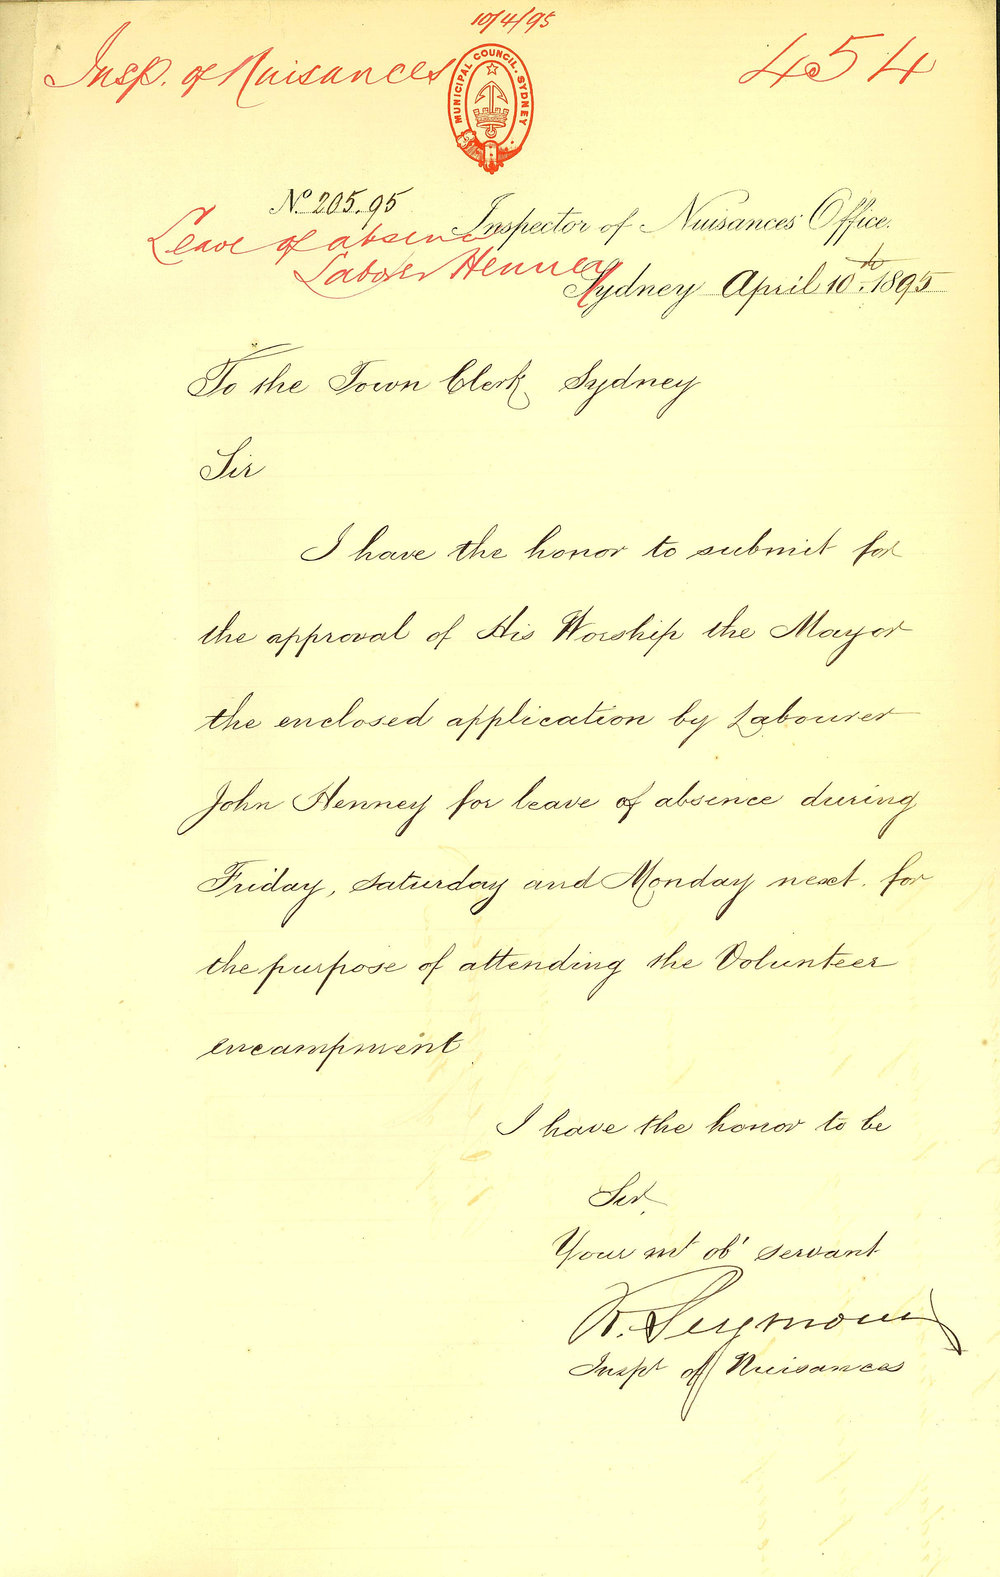 10/4/95
Insp. of Nuisances
454
MUNICIPAL COUNCIL. SYDNEY
No. 205.95
Inspector of Nuisances Office.
Leave of absence
Labourer Henney
Sydney April 10th 1895
To the Town Clerk Sydney
Sir
I have the honor to submit for
the approval of His Worship the Mayor
the enclosed application by Labourer
John Henney for leave of absence during
Friday, Saturday and Monday next. for
the purpose of attending the Volunteer
encampment
I have the honor to be
Sir
Your mt obt servant
R. Seymour
Inspr of Nuisances